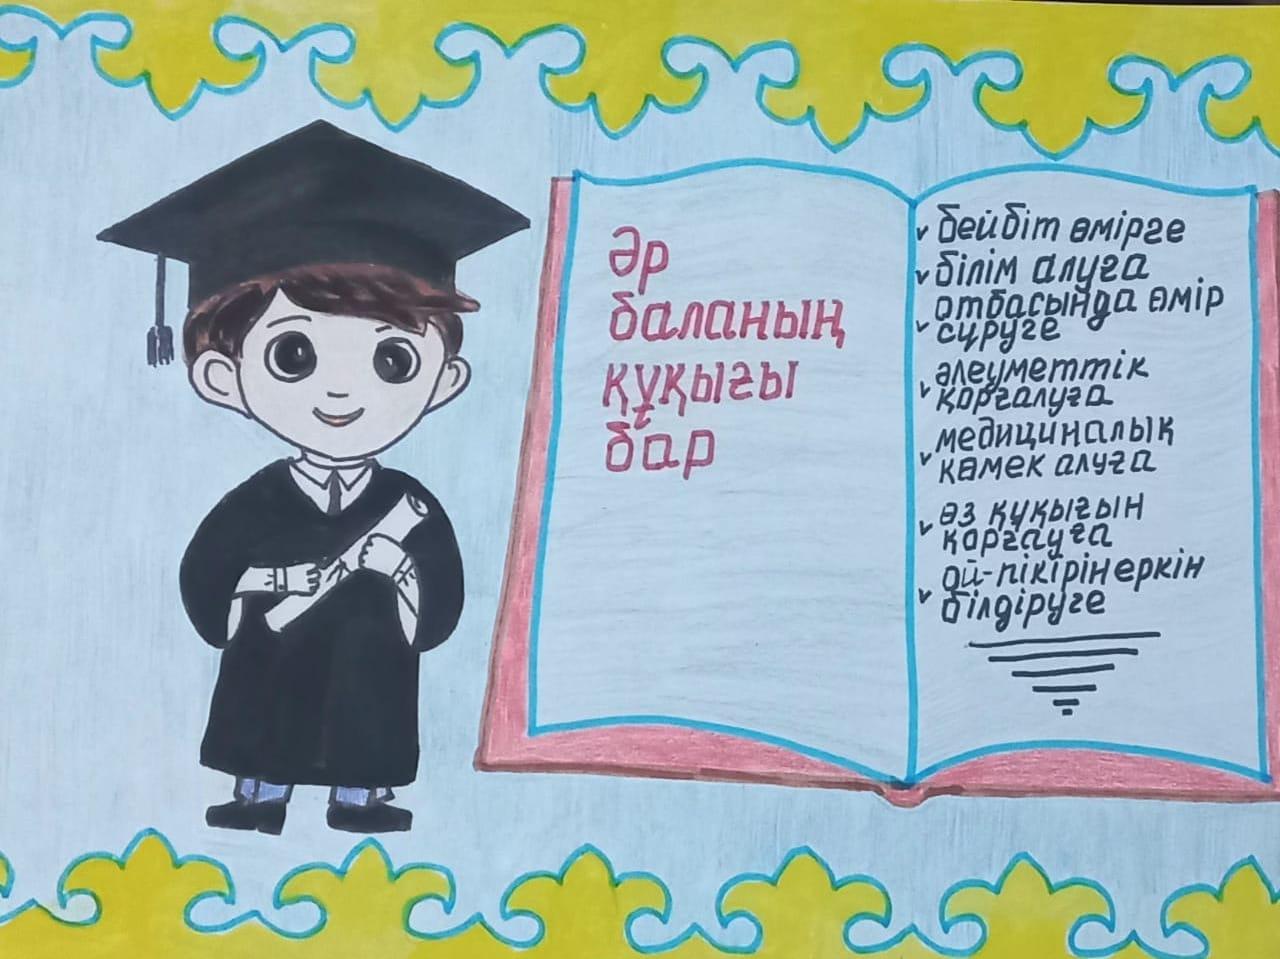 Әр
баланың
құқығы
бар
бейбіт өмірге
білім алуға
отбасында өмір
сұруге
әлеуметтік
қорғалуға
медициналық
көмек алуға
өз құқығын
қорғауға
ой-пікірін еркін
білдіруге